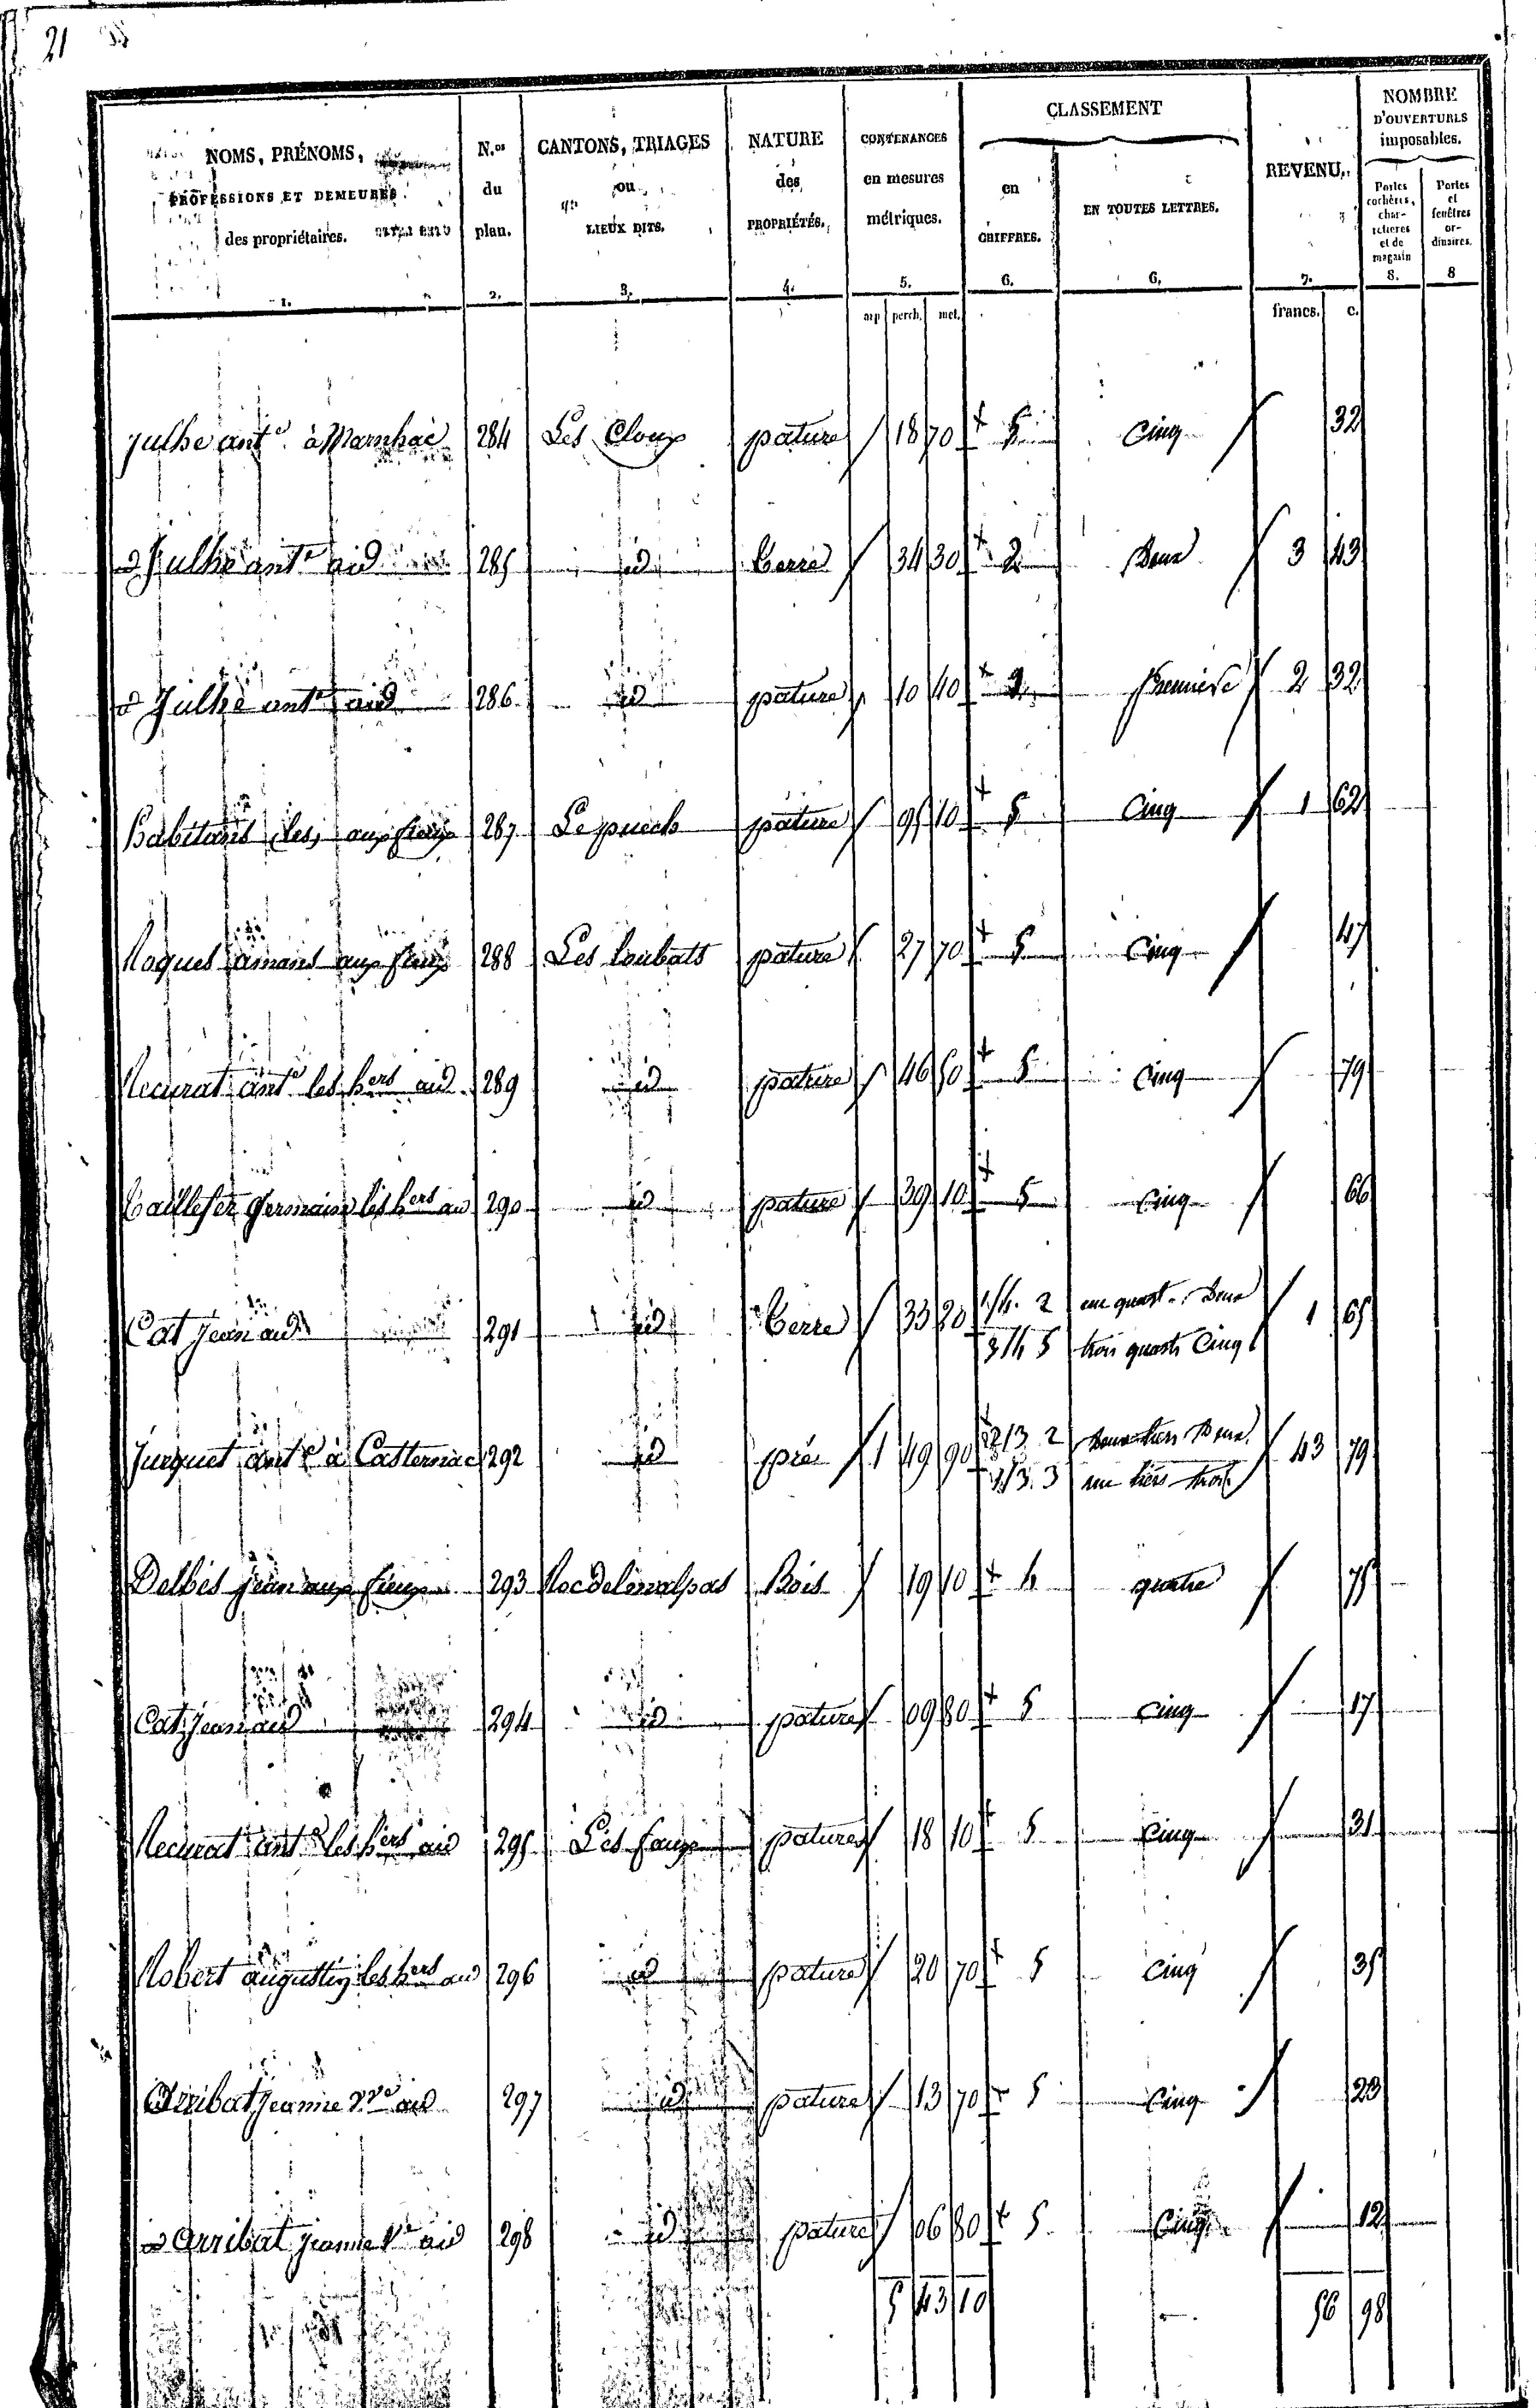 21
NOMS, PRÉNOMS,
PROFESSIONS ET DEMEURES
des propriétaires.
1.
N.os
du
plan.
2.
CANTONS, TRIAGES
ou
LIEUX DITS.
3.
NATURE
des
PROPRIÉTÉS.
4.
CONTENANCES
en mesures
métriques.
5.
arp perch. met.
CLASSEMENT
en
CHIFFRES.
6.
EN TOUTES LETTRES.
6.
REVENU.
7.
francs. c.
NOMBRE
D'OUVERTURES
imposables.
Portes
cochères,
char-
retières
et de
magasin
8.
Portes
et
fenêtres
or-
dinaires.
8
Julhe ant.e à Marnhac 284 Les Cloux pature 18 70 5 Cinq 32
d Julhe ant.e aid 285 id terre 34 30 2 Deux 3 43
d Julhe ant.e aid 286 id pature 10 40 1 première 2 32
habitans (les) aux fieux 287 Le puech pature 95 10 5 Cinq 1 62
Roques amans aux fieux 288 Les Loubats pature 27 70 5 Cinq 47
Recurat ant.e les hers aid 289 id pature 46 50 5 Cinq 79
Taillefer Germain les hers aid 290 id pature 39 10 5 Cinq 66
Cat Jean aid 291 id terre 33 20 1/4. 2 un quart.. Deux 1 65
3/4 5 trois quarts Cinq
Jurquet ant.e à Casternac 292 id pré 1 49 90 2/3 2 Deux tiers Deux 43 79
1/3. 3 un tiers trois
Delbes Jean aux fieux 293 Roc delmalpas Bois 19 10 4 quatre 75
Cat Jean aid 294 id pature 09 80 5 Cinq 17
Recurat ant.e les hers aid 295 Les faux pature 18 10 5 Cinq 31
Robert augustin les hers aid 296 id pature 20 70 5 Cinq 35
Arribat Jeanne v.ve aid 297 id pature 13 70 5 Cinq 23
d Arribat Jeanne v.e aid 298 id pature 06 80 5 Cinq 12
5 43 10 56 98